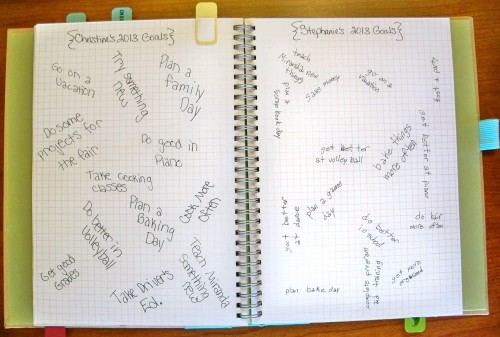 {Christine's 2013 Goals}
Go on a
vacation
Try something
new
Plan a
family
Day
Do some
projects for
the fair
Do good in
Piano
Take cooking
classes
Do better in
Volleyball
Plan a
Baking
Day
Cook More
Often
Get good
Grades
Take Drivers
Ed.
Teach Miranda
something
new
{Stephanie's 2013 Goals}
teach
Miranda new
things
plan a
scrapbook day
save money
go on a
vacation
get better
at volleyball
bake things
more often
get better at piano
get better
at dance
plan a games
day
do better
in school
do hair
more often
try eating
get more
organized
plan bake day